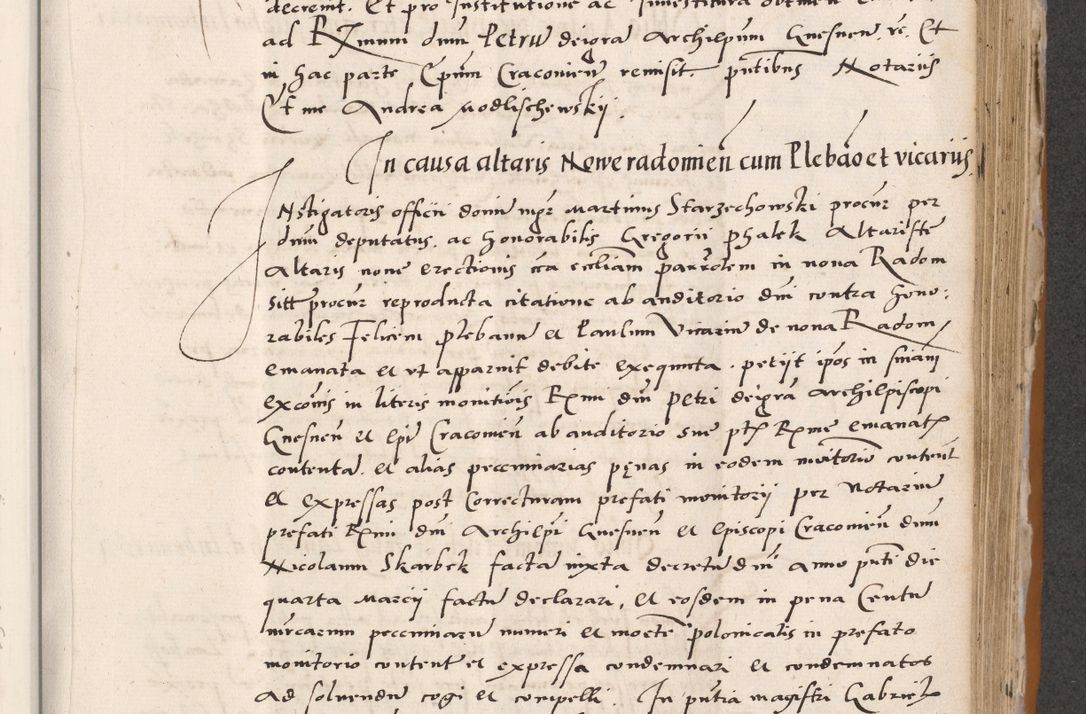 decrevit. Et pro Institutione ac Investitura
ad Rx̃mum dnm̃ Petrũ dei gra Archiepũm Gnesneñ. Et
in hac parte Ep̃um Cracovieñ remisit. pñtibus Notariis
Et me Andrea Modlischewskij.
In causa altaris Noweradomieñ cum Plebão et vicariis
INstigatoris officii domĩ mgr̃ Martinus Starzechowski procur̃ per
dnm̃ deputatus. ac honorabilis Gregorii Phalek Altariste
Altaris nove erectionis ecclĩam parr̃olem in nova Radom
sitt̃ procur̃ reproducta citatione ab auditorio dnĩ contra hono:
rabiles Felicem Plebanũ et Paulum Vicariũ de nova Radom
emanata et ut apparuit debite exequuta. petijt ip̃os in sñiam
exco͠nis in literis monitoriis Rx̃mi dnĩ Petri dei gr̃a Archiepiscopi
Gnesneñ et Epĩ Cracovieñ ab auditorio sue pt̃ Rx̃me emanat̃
contenta. et alias peccuniarias penas in eodem monitorio content̃
et expressas post correcturam prefati monitorii per Notariũ
prefati Rx̃mi dnĩ Archiepĩ Gnesneñ et Episcopi Cracovieñ dnm̃
Nicolaum Skarbek facta iuxta decretũ dnĩ anno pñti die
quarta Marcij factũ declarari, et eosdem in pena Centũ
mrcarum peccuniarũ numeri et monete polonicalis in prefato
monitorio content̃ et expressa condemnari et condemnatos
ad solvendũ cogi et compelli. In pñtia magistri Gabrielis